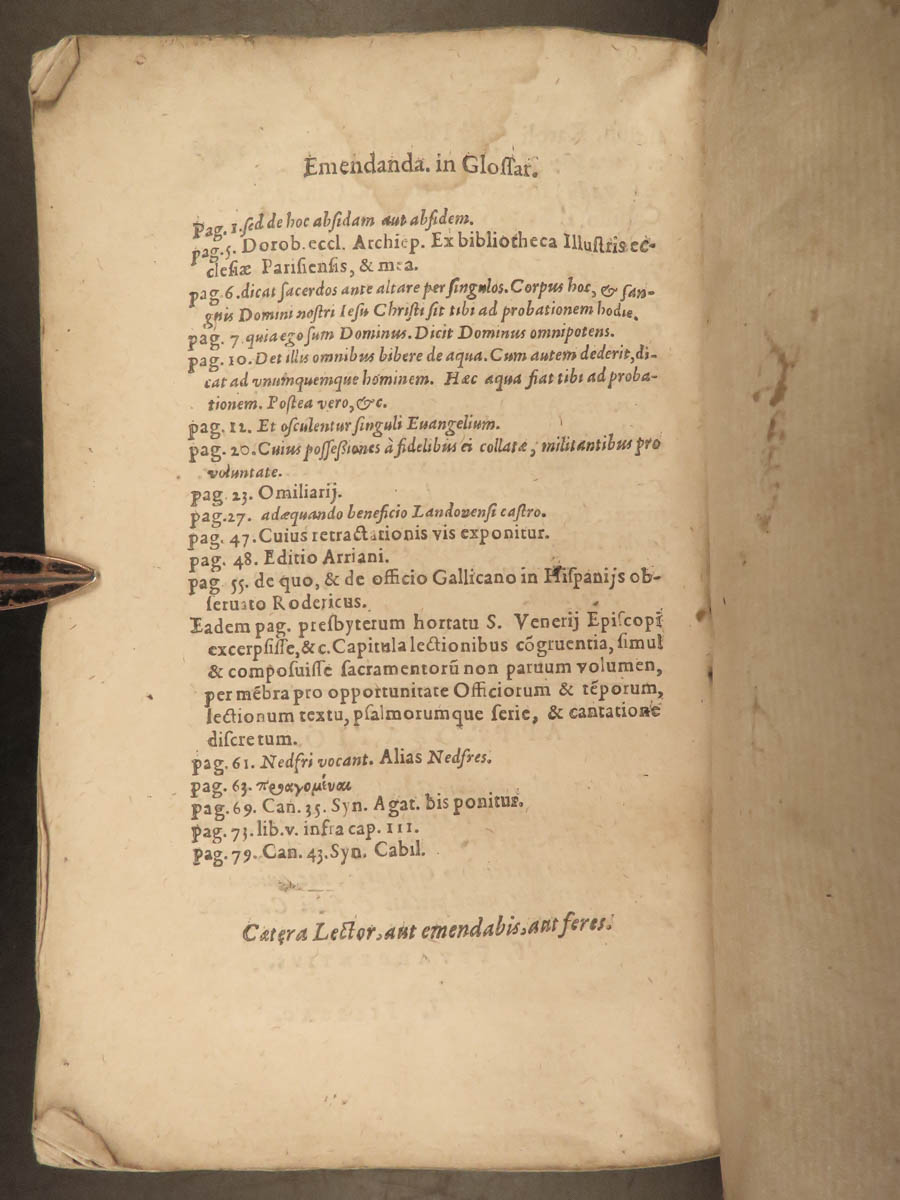 Emendanda. in Gloſſar.
pag. 1. ſed de hoc abſidam aut abſidem.
pag. 5. Dorob. eccl. Archiep. Ex bibliotheca Illuſtris ec-
cleſiæ Pariſienſis, & mea.
pag. 6. dicat ſacerdos ante altare per ſingulos. Corpus hoc, & ſan-
guis Domini noſtri Ieſu Chriſti ſit tibi ad probationem hodie.
pag. 7 quia ego ſum Dominus. Dicit Dominus omnipotens.
pag. 10. Det illis omnibus bibere de aqua. Cum autem dederit, di-
cat ad vnumquemque hominem. Hæc aqua fiat tibi ad proba-
tionem. Poſtea vero, &c.
pag. 12. Et oſculentur ſinguli Euangelium.
pag. 20. Cuius poſſeſſiones à fidelibus ei collatæ, militantibus pro
voluntate.
pag. 23. Omiliarij.
pag. 27. adæquando beneficio Landovenſi caſtro.
pag. 47. Cuius retractationis vis exponitur.
pag. 48. Editio Arriani.
pag. 55. de quo, & de officio Gallicano in Hiſpanijs ob-
ſeruato Rodericus.
Eadem pag. preſbyterum hortatu S. Venerij Epiſcopi
excerpſiſſe, &c. Capitula lectionibus cōgruentia, ſimul
& compoſuiſſe ſacramentorū non paruum volumen,
per mēbra pro opportunitate Officiorum & tēporum,
lectionum textu, pſalmorumque ſerie, & cantatione
diſcretum.
pag. 61. Nedfri vocant. Alias Nedfres.
pag. 63. πραγομίναι
pag. 69. Can. 35. Syn. Agat. bis ponitur.
pag. 73. lib. v. infra cap. III.
pag. 79. Can. 43. Syn. Cabil.
Cætera Lector, aut emendabis, aut feres.